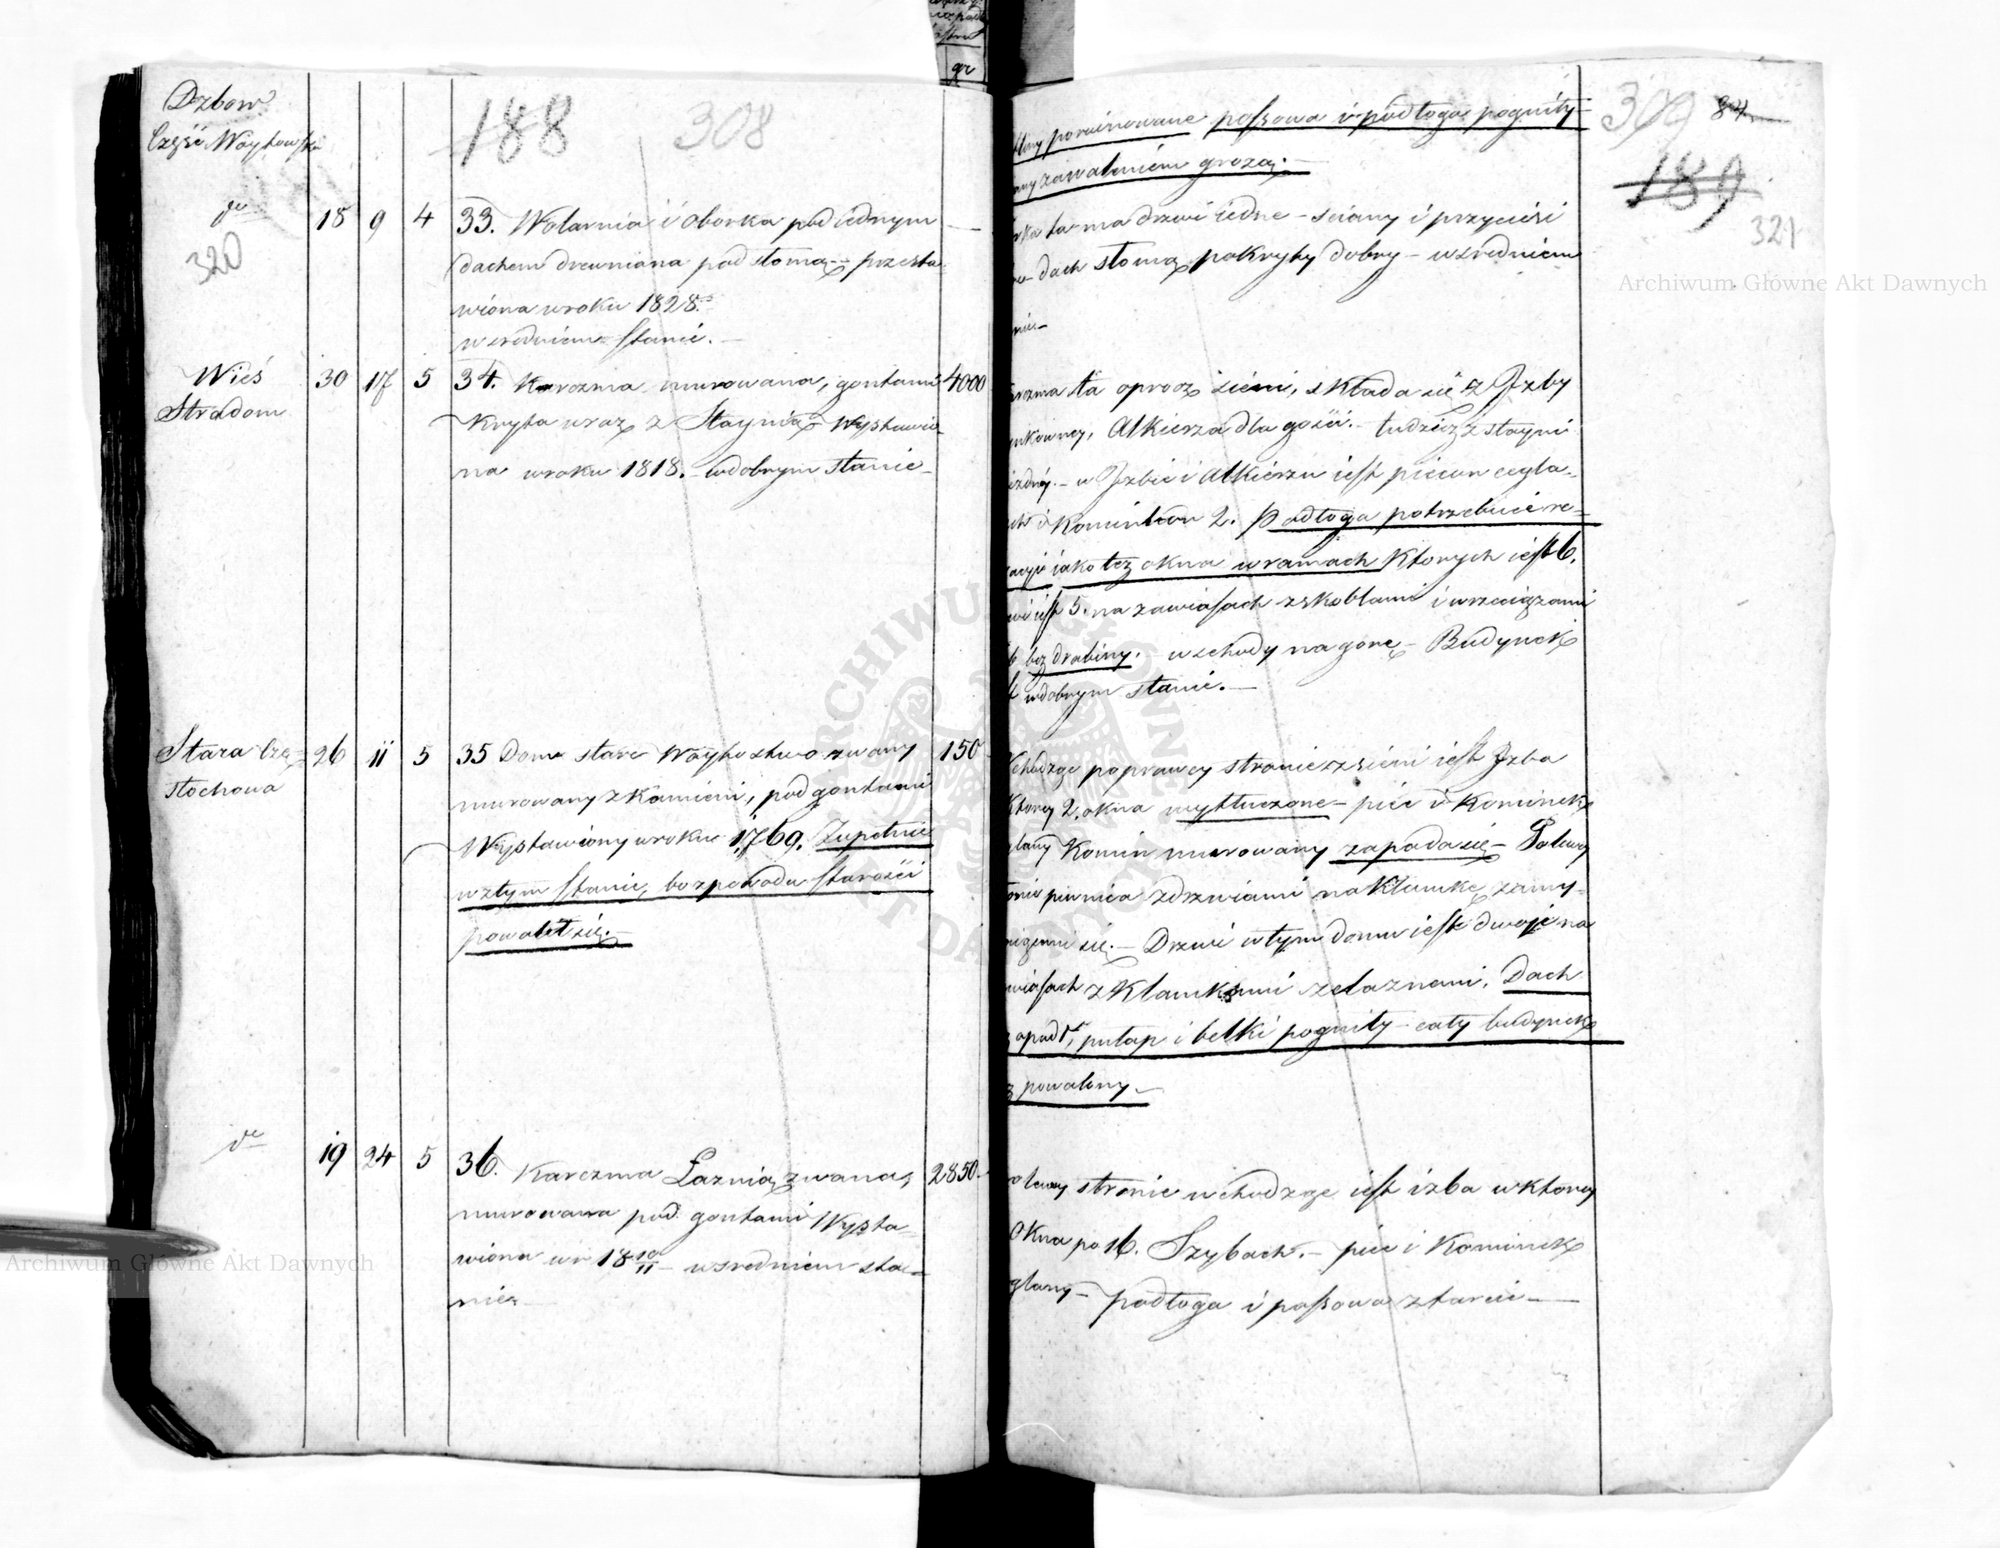 Dzbow
Część Woytowska
188
308
do
320
18 9 4
33. Wolarnia i Oborka pod iednym
dachem drewniana pod słomą - przesta-
wiona w roku 1828.
w srednim stanie. -
Wieś
Stradom
30 17 5
34. Karczma murowana, gontami
kryta wraz z Staynią - wystawio-
na w roku 1818. - w dobrym stanie -
4000
Stara Czę-
stochowa
26 11 5
35 Dom stare Woytostwo zwany
murowany z kamieni, pod gontami
Wystawiony w roku 1769. Zupełnie
w złym stanie, bo z powodu starości
powalił się. -
150
do
19 24 5
36. Karczma Łaznią zwana,
murowana pod gontami Wysta-
wiona w r 18 10/11 - w srednim sta-
nie -
2850 -
porainowane possowa i podłoga pogniły -
zawaleniem grozą. -
ta ma drzwi iedne - sciany i przyciesi
dach słomą pokryty dobry - w srednim
nie -
ta oprocz sieni, składa się z Jzby
Alkierza dla gości. - tudzież z stayni
- w Jzbie i Alkierzu iest piecow cegla-
i kominkow 2. Podłoga potrzebuie re-
iako też okna w ramach których iest 6.
iest 5. na zawiasach z skoblami i wrzeciązami
bez drabiny. wschody na gorę - Budynek
w dobrym stanie. -
po prawey stronie z sieni iest Jzba
którey 2. okna wytłuczone - piec i Kominek
Komin murowany zapada się - Po lewey
piwnica z drzwiami na klamkę zamy-
się. - Drzwi w tym domu iest dwoje na
z klamkami zelaznemi. Dach
opadł, pułap i belki pogniły - cały budynek
powalony -
stronie wchodząc iest izba w którey
Okna po 16. Szybach. - piec i Kominek
podłoga i possowa z tarcic -
309
84
189
321
Archiwum Główne Akt Dawnych
Archiwum Główne Akt Dawnych